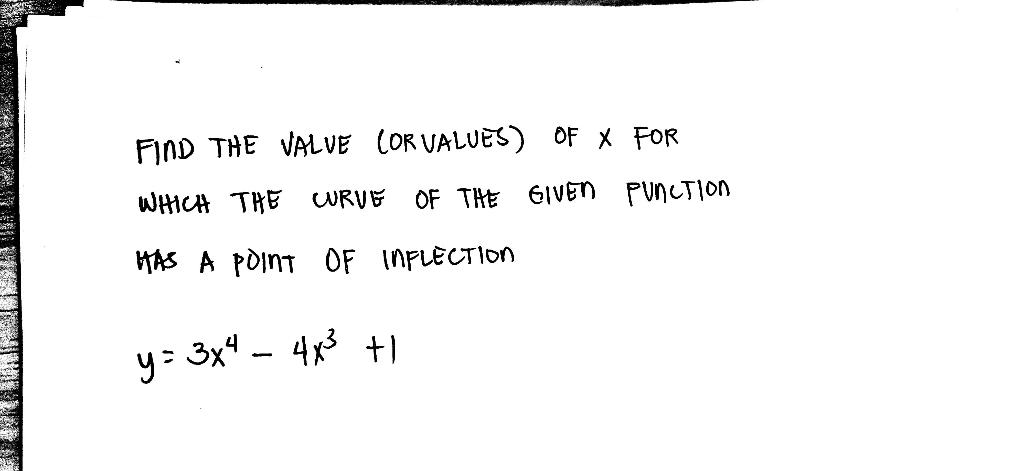 FIND THE VALUE (OR VALUES) OF X FOR
WHICH THE CURVE OF THE GIVEN FUNCTION
HAS A POINT OF INFLECTION
y = 3x⁴ - 4x³ + 1